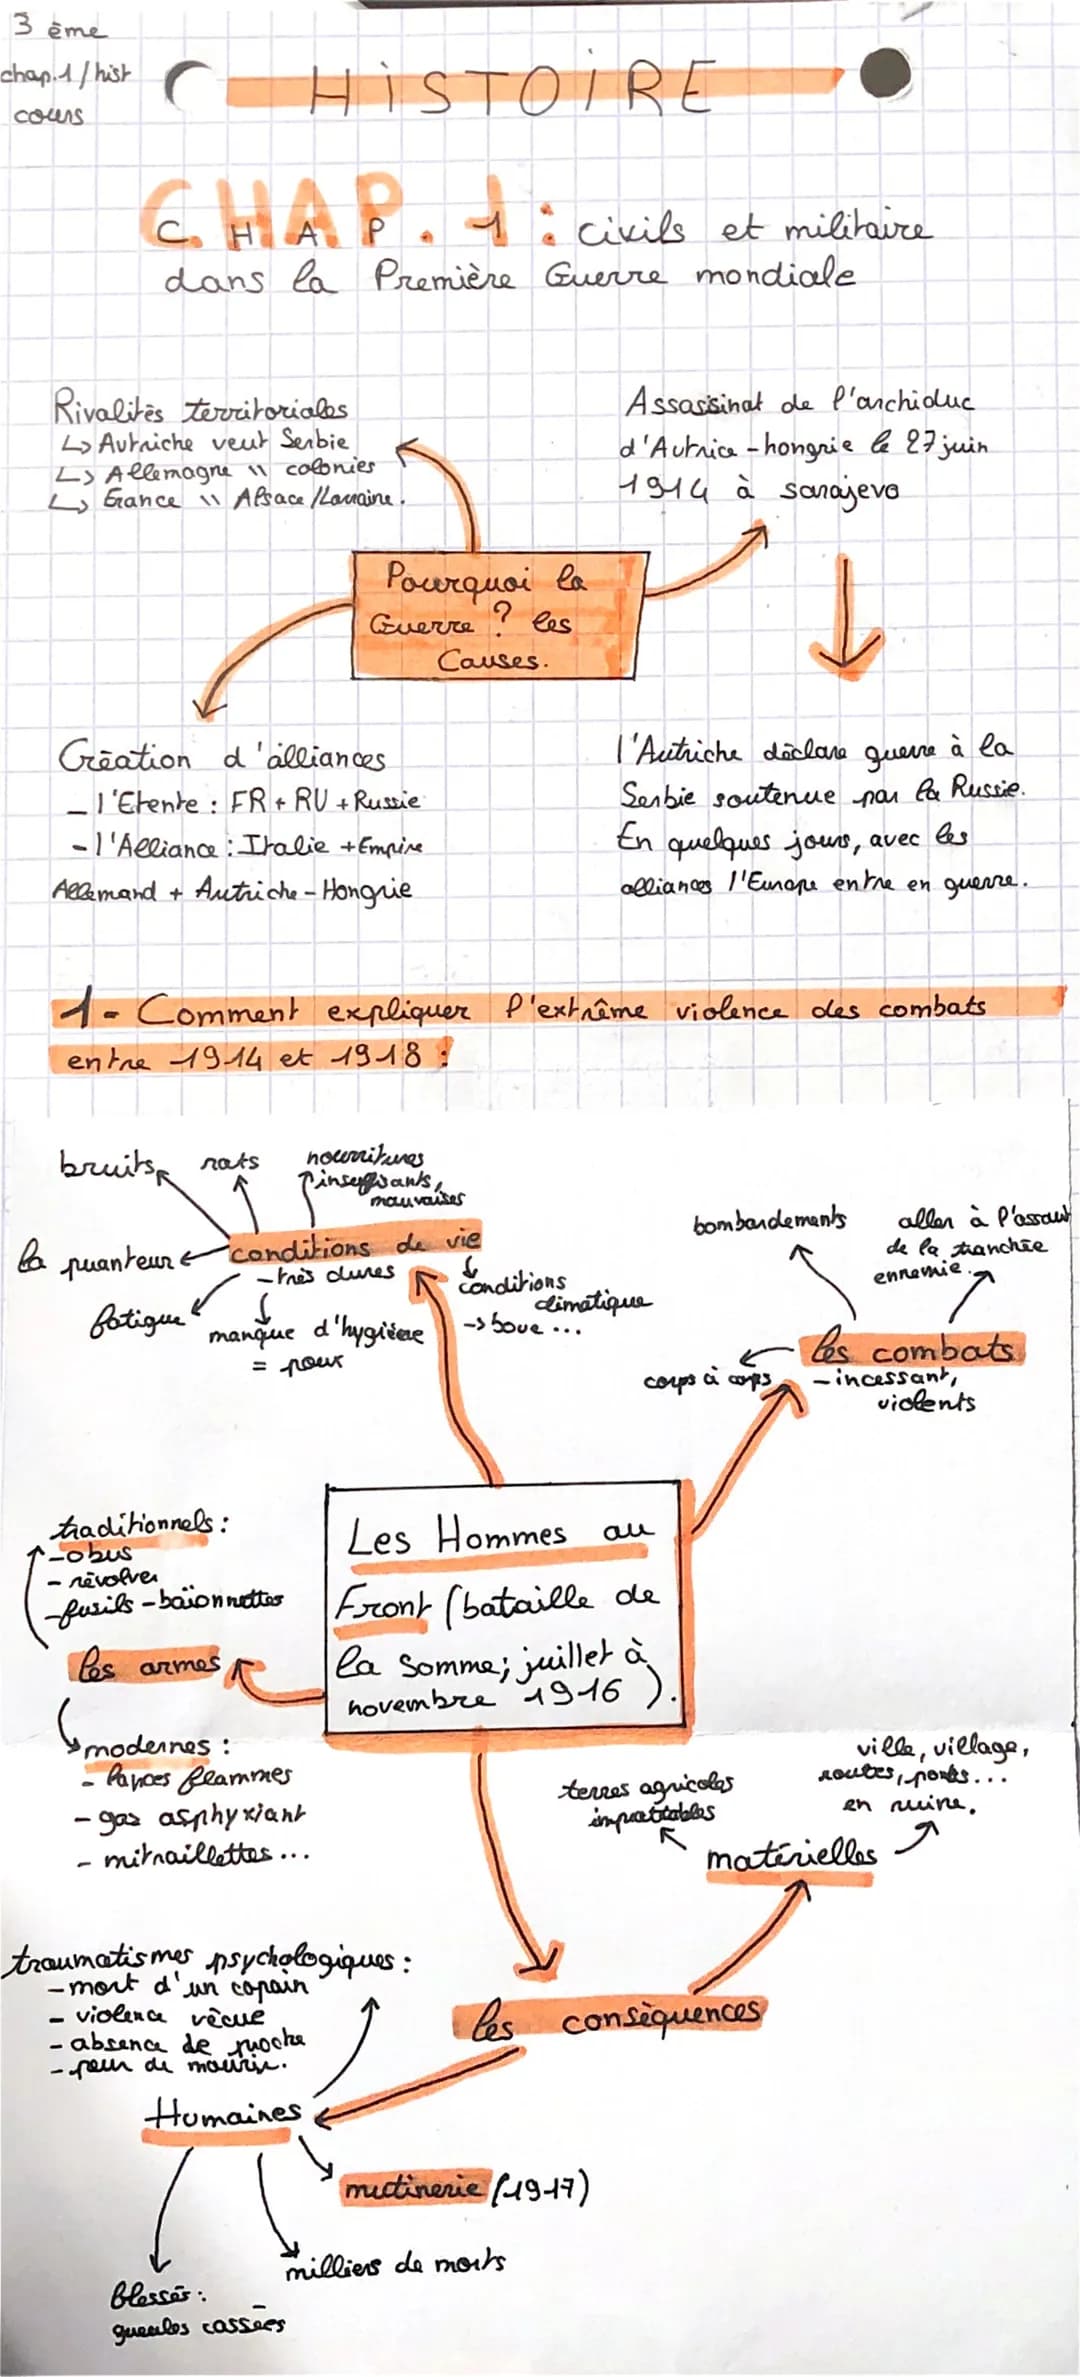 3 ème
chap.1 / hist
cours
HISTOIRE
CHAP. 1 : civils et militaire
dans la Première Guerre mondiale
Rivalités territoriales
↳ Autriche veut Serbie
↳ Allemagne " colonies
↳ France " Alsace /Lorraine.
Assassinat de l'archiduc
d'Autrice - hongrie le 27 juin
1914 à sarajevo
Pourquoi la
Guerre ? les
Causes.
Création d'alliances
- l'Etente : FR + RU + Russie
- l'Alliance : Italie + Empire
Allemand + Autriche - Hongrie
l'Autriche déclare guerre à la
Serbie soutenue par la Russie.
En quelques jours, avec les
alliances l'Europe entre en guerre.
1 - Comment expliquer l'extrême violence des combats
entre 1914 et 1918 :
bruits
rats
nourritures
insuffisants,
mauvaises
la puanteur
conditions de vie
- très dures
fatigue
manque d'hygiène
= poux
conditions
climatique
-> boue ...
bombardements
aller à l'assaut
de la tranchée
ennemie.
les combats
- incessant,
violents
corps à corps
Les Hommes au
Front (bataille de
la Somme; juillet à
novembre 1916 ).
traditionnels :
- obus
- révolver
- fusils - baïonnettes
les armes
modernes :
- lances flammes
- gaz asphyxiant
- mitraillettes ...
terres agricoles
ville, village,
routes, ponts...
en ruine.
matérielles
les conséquences
traumatismes psychologiques :
- mort d'un copain
- violence vécue
- absence de proche
- peur de mourir.
Humaines
mutinerie (1917)
milliers de morts
Blessés :
gueules cassées